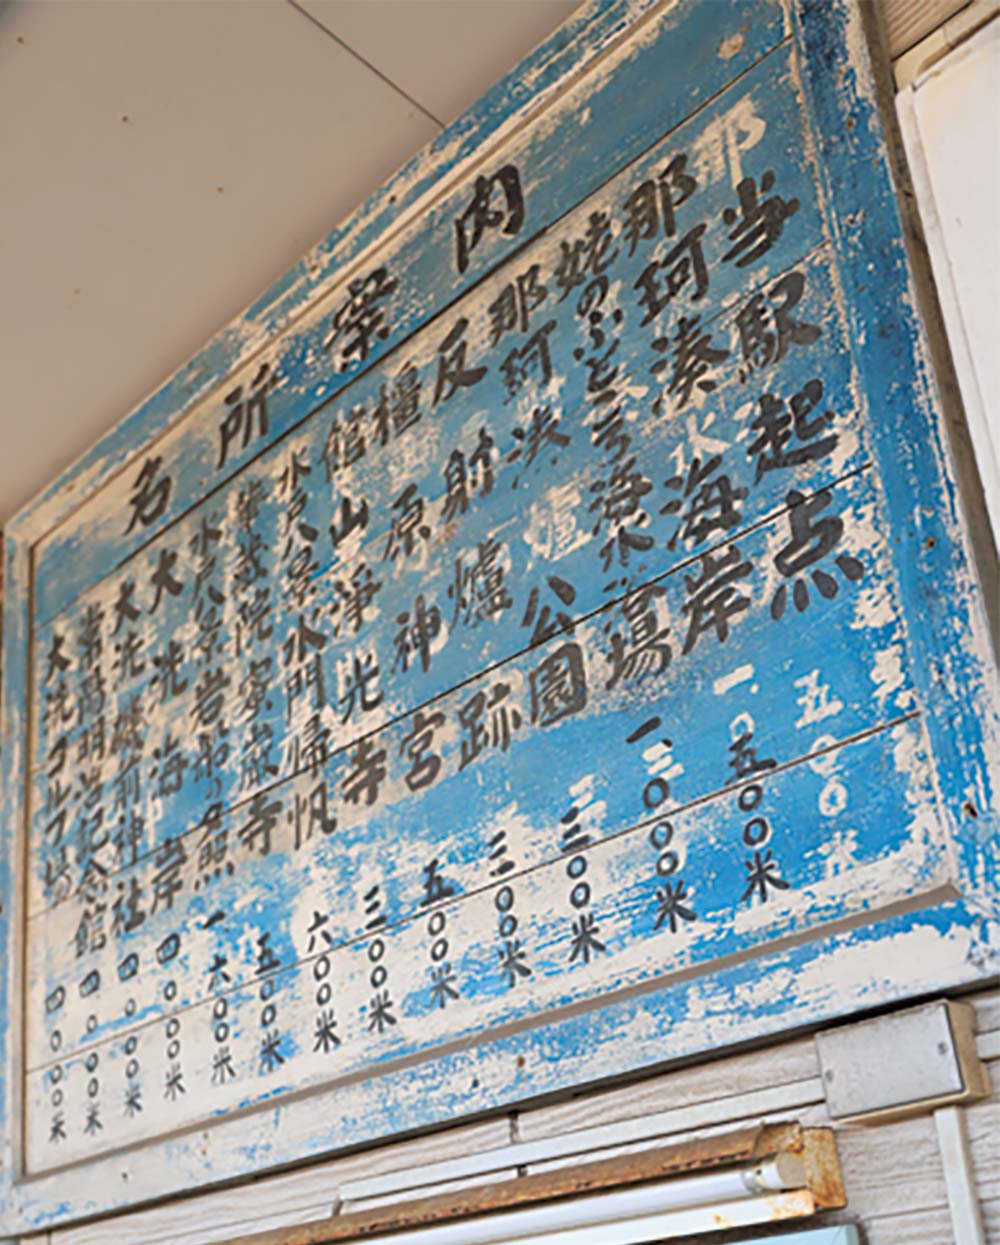 名所案内
当駅起点
那珂湊海岸 五〇〇米
姥のふところ海水浴場 一、〇〇〇米
那珂湊公園 三〇〇米
反射爐跡 三〇〇米
橿原神宮 五〇〇米
館山淨光寺 三〇〇米
水戸八景水門帰帆 六〇〇米
華蔵院 厳寺 五〇〇米
水戸八景岩船の夕照 一六〇〇米
大洗海岸 四〇〇〇米
大洗磯前神社 四〇〇〇米
常陽明治記念館 四〇〇〇米
大洗ゴルフ場 四〇〇〇米